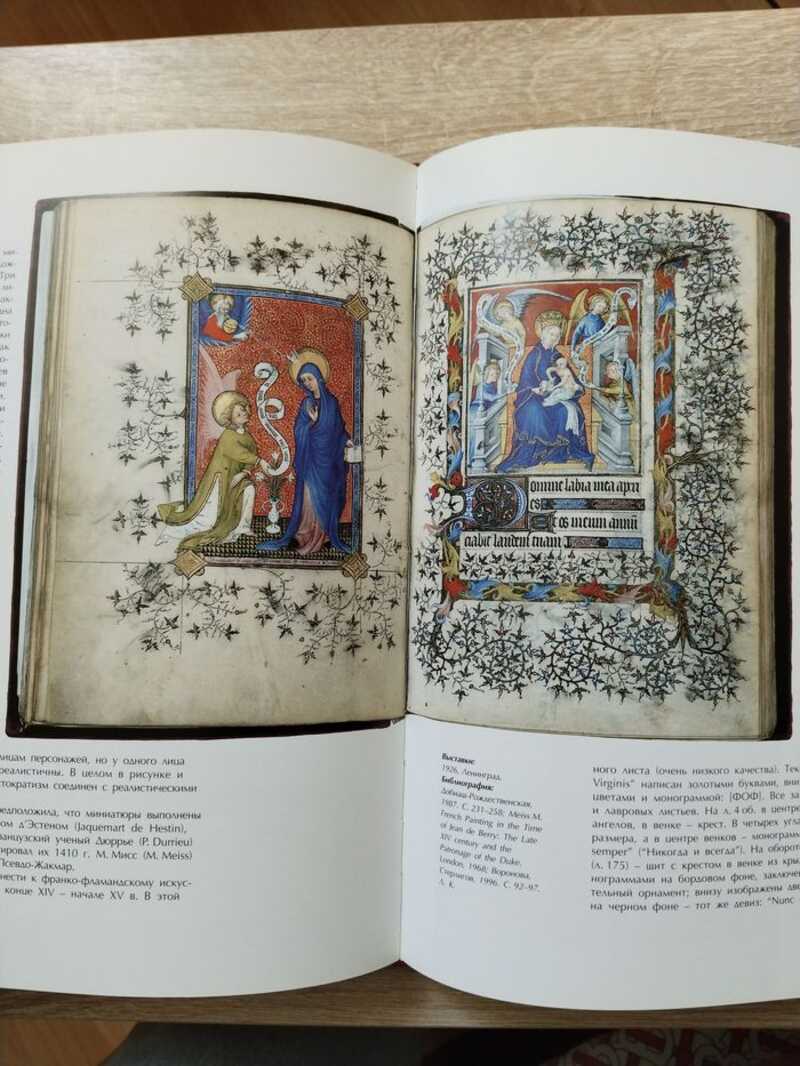 ми-
дож-
Три
ли-
ак-
на
то-
ки
ак
о-
ев
не
и,
и
-
лицам персонажей, но у одного лица
реалистичны. В целом в рисунке и
стократизм соединен с реалистическими
редположила, что миниатюры выполнены
ом д’Эстеном (Jaquemart de Hestin),
ранцузский ученый Дюррье (P. Durrieu)
ировал их 1410 г. М. Мисс (M. Meiss)
Псевдо-Жакмар.
нести к франко-фламандскому искус-
конце XIV – начале XV в. В этой
Domine labia mea apri
es
Et os meum annũ
ciabit laudem tuam
Выставки:
1926, Ленинград.
Библиография:
Добиаш-Рождественская,
1987. С. 231–258; Meiss M.
French Painting in the Time
of Jean de Berry: The Late
XIV century and the
Patronage of the Duke.
London, 1968; Воронова,
Стерлигов, 1996. С. 92–97.
Л. К.
ного листа (очень низкого качества). Тек
Virginis” написан золотыми буквами, вни
цветами и монограммой: [ФОФ]. Все за
и лавровых листьев. На л. 4 об. в центр
ангелов, в венке – крест. В четырех угла
размера, а в центре венков – монограмм
semper” (“Никогда и всегда”). На оборот
(л. 175) – щит с крестом в венке из кры
нограммами на бордовом фоне, заключен
тельный орнамент; внизу изображены дво
на черном фоне – тот же девиз: “Nunc